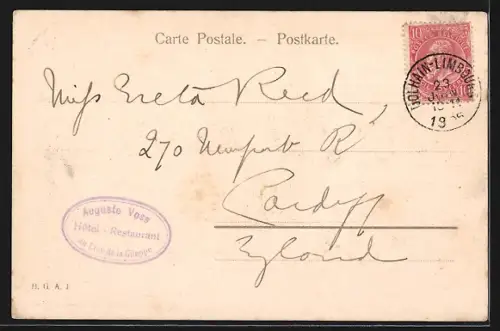 Carte Postale. – Postkarte.
10
DOLHAIN-LIMBOURG
23
10-11
19
Miss Greta Reed,
270 Newport Rd
Cardiff
England
Auguste Voss
Hôtel - Restaurant
H. G. A. J